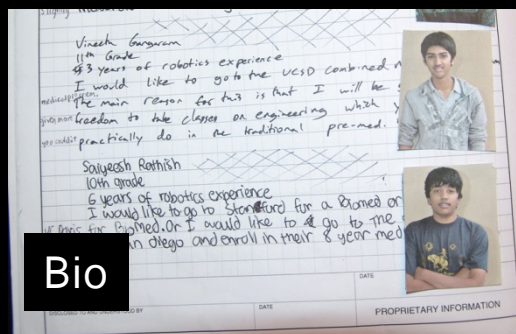 slightly
Vineeth Gangaram
11th Grade
3 years of robotics experience
I would like to go to the UCSD combined
medical program.
The main reason for this is that I will be
given more
freedom to take classes on engineering which
you couldn't
practically do in the traditional pre-med.
Saiyeesh Rathish
10th grade
6 years of robotics experience
I would like to go to Stanford for a Biomed or
UC Davis for BioMed. Or I would like to go to The
San diego and enroll in their 8 year med
Bio
DISCLOSED TO AND UNDERSTOOD BY
DATE
DATE
PROPRIETARY INFORMATION